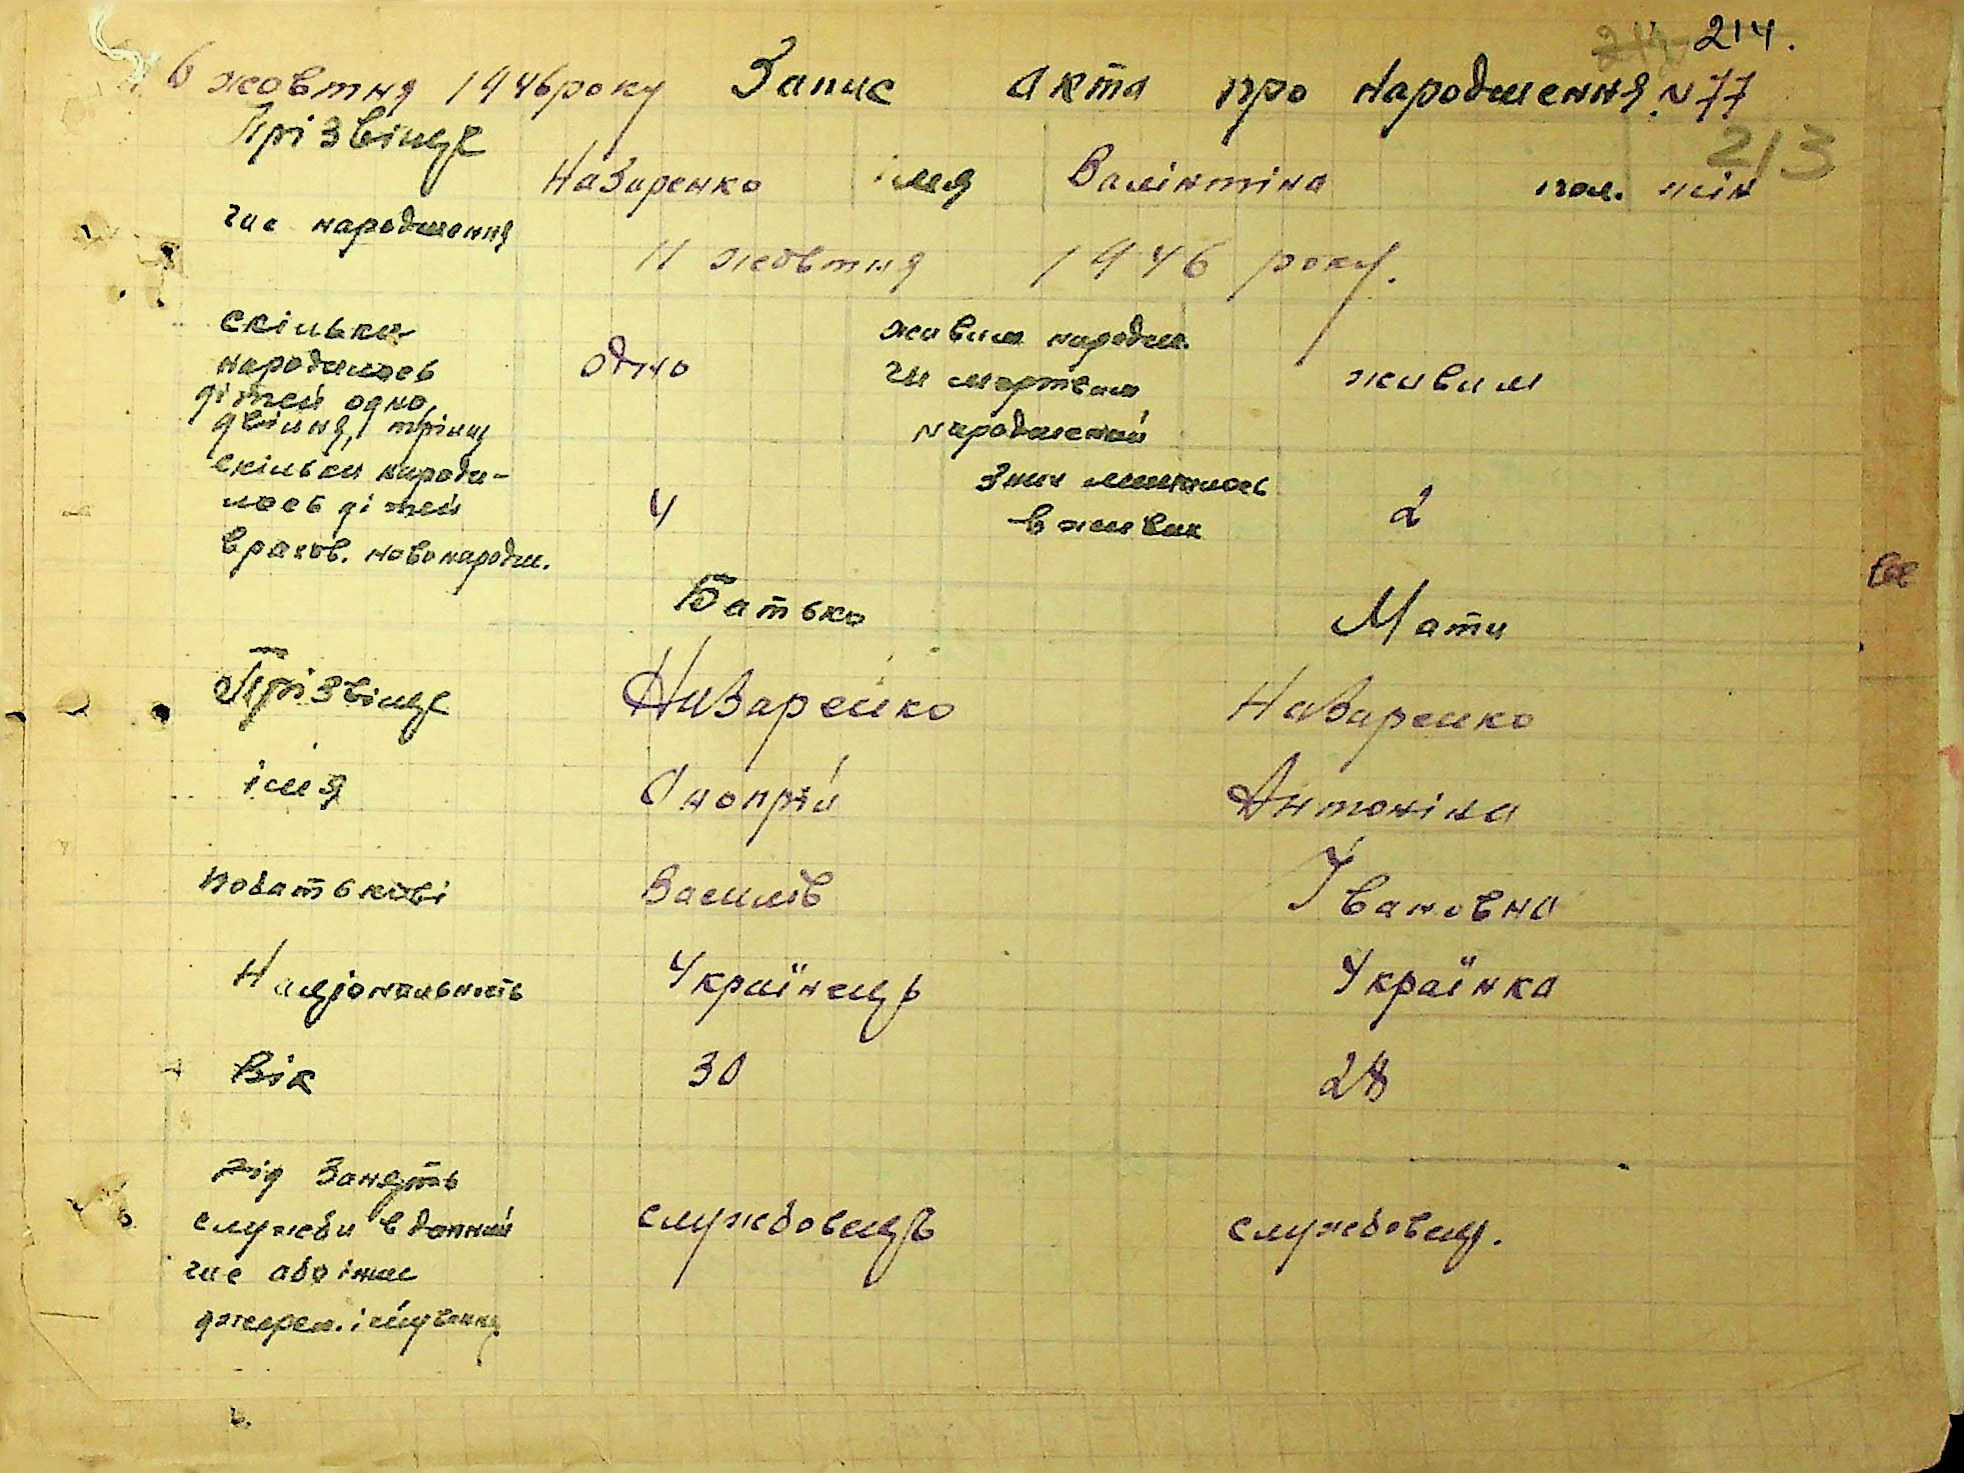 214. 214.
6 жовтня 1946 року Запис акта про народження N 77
213
Прізвіще Назаренко імя Валінтіна пол. жін
час народження 11 жовтня 1946 року.
скільки народилось дітей одно, двійня, трійня одно живим народж. чи мертвим народжений живим
скільки народи-
лось дітей
врахов. новонародж. 4 З них лишилось в живих 2
Батько Мати
Прізвіще Назаренко Назаренко
імя Онопрій Антоніна
побатькові Василів Івановна
Національність Українець Українка
Вік 30 28
рід занять
служби в данний службовець службовц.
час або інше
джерел. існування